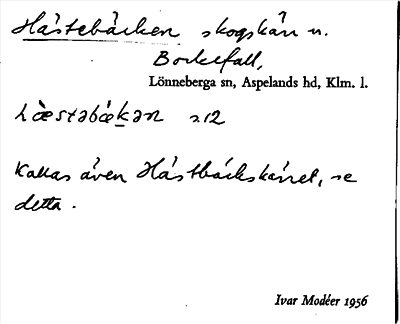 Hästebäcken skogskärr n.
Borkefall,
Lönneberga sn, Aspelands hd, Klm. l.
hæ̀stəbǽkən s.12
Kallas även Hästbäckskärret, se
detta.
Ivar Modéer 1956